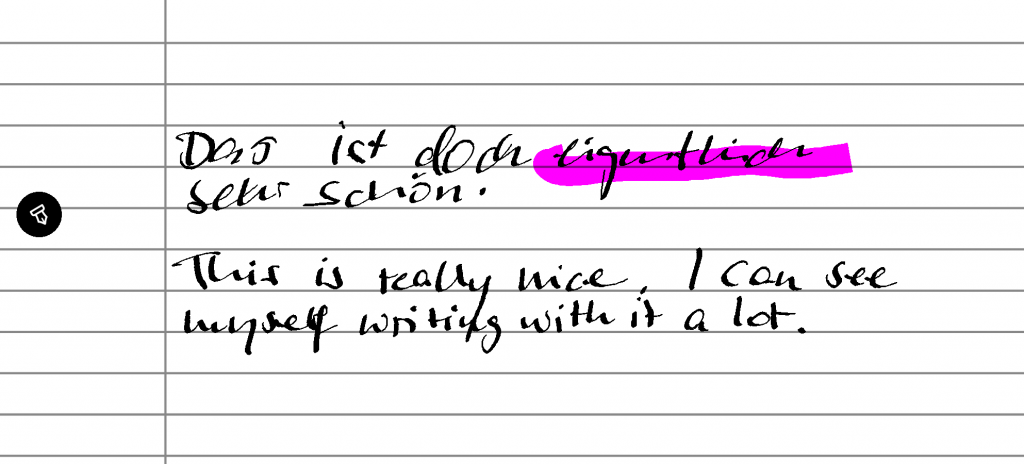 Das ist doch eigentlich
sehr schön.
This is really nice. I can see
myself writing with it a lot.